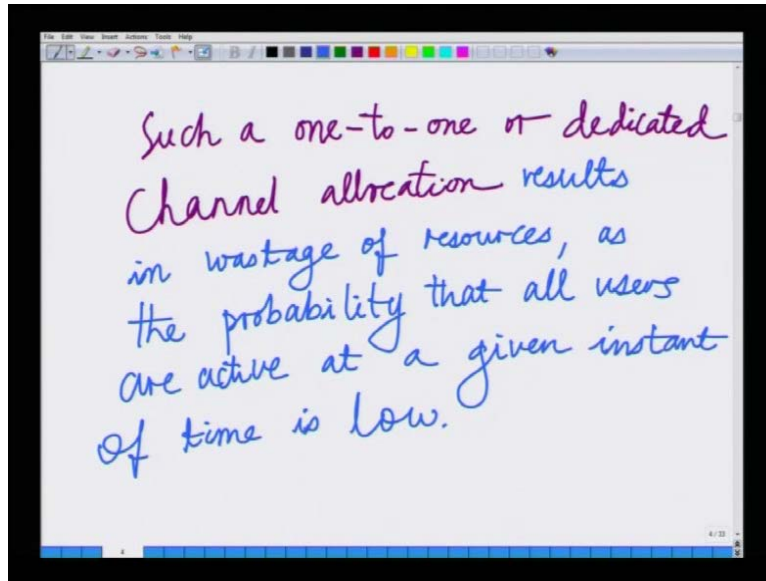 File Edit View Insert Actions Tools Help
B I
Such a one-to-one or dedicated
Channel allocation results
in wastage of resources, as
the probability that all users
are active at a given instant
of time is low.
4/33
4